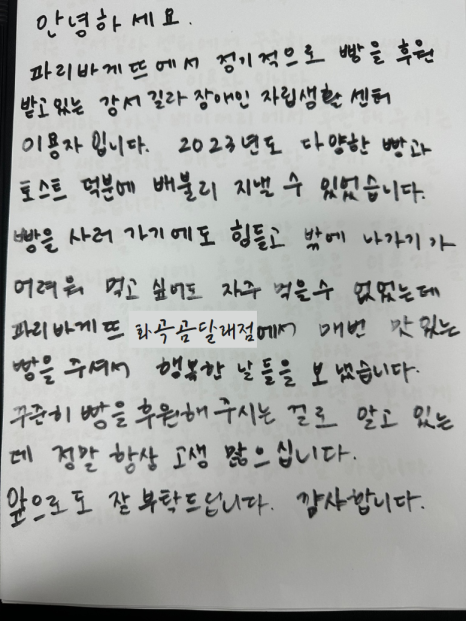 안녕하세요.
파리바게뜨에서 정기적으로 빵을 후원
받고 있는 강서길라 장애인 자립생활 센터
이용자 입니다. 2023년도 다양한 빵과
토스트 덕분에 배불리 지낼 수 있었습니다.
빵을 사러 가기에도 힘들고 밖에 나가기가
어려워 먹고 싶어도 자주 먹을수 없었는데
파리바게뜨 화곡곰달래점에서 매번 맛있는
빵을 주셔서 행복한 날들을 보냈습니다.
꾸준히 빵을 후원해 주시는 걸로 알고 있는
데 정말 항상 고생 많으십니다.
앞으로도 잘 부탁드립니다. 감사합니다.